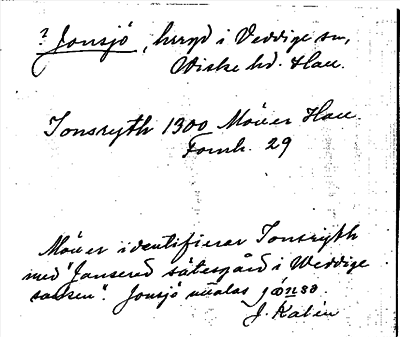 ? Jonsjö, hrryd i Veddige sn,
Viske hd. Hall.
Tonsryth 1300 Möller Hall.
Fornh. 29
Möller identifierar Tonsryth
med "Jansered sätesgård i Weddige
socken". Jonsjö uttalas
J. Kalén